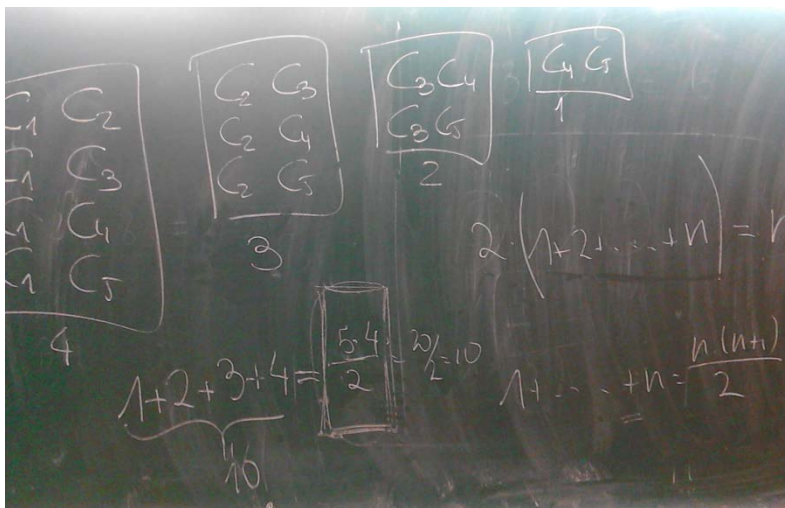 C1 C2
C1 C3
C1 C4
C1 C5
4
C2 C3
C2 C4
C2 C5
3
C3 C4
C3 C5
2
C4 C5
1
2·(1+2+...+n) = n
1+2+3+4 = 5·4/2 = 20/2 = 10
10
1+...+n = n·(n+1)/2